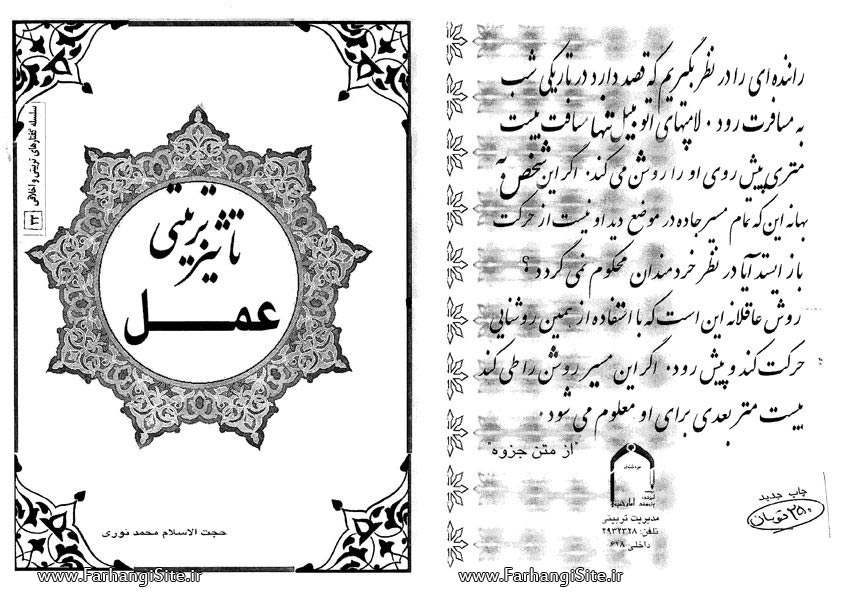 سلسله گفتارهای تربیتی و اخلاقی
۲۳
تأثیر تربیتی
عمـــل
حجت الاسلام محمد نوری
www.FarhangiSite.ir
راننده ای را در نظر بگیریم که قصد دارد در تاریکی شب
به مسافرت رود. لامپهای اتومبیل تنها مسافت بیست
متری پیش روی او را روشن می کند. اگر این شخص به
بهانه این که تمام مسیر جاده در موضع دید او نیست از حرکت
باز ایستد آیا در نظر خردمندان محکوم نمی گردد؟
روش عاقلانه این است که با استفاده از همین روشنایی
حرکت کند و پیش رود. اگر این مسیر روشن را طی کند
بیست متر بعدی برای او معلوم می شود.
"از متن جزوه"
مدیریت تربیتی
تلفن: ۲۹۳۲۳۲۸
داخلی ۶۲۸
چاپ جدید
۳۵۰ تومان
www.FarhangiSite.ir